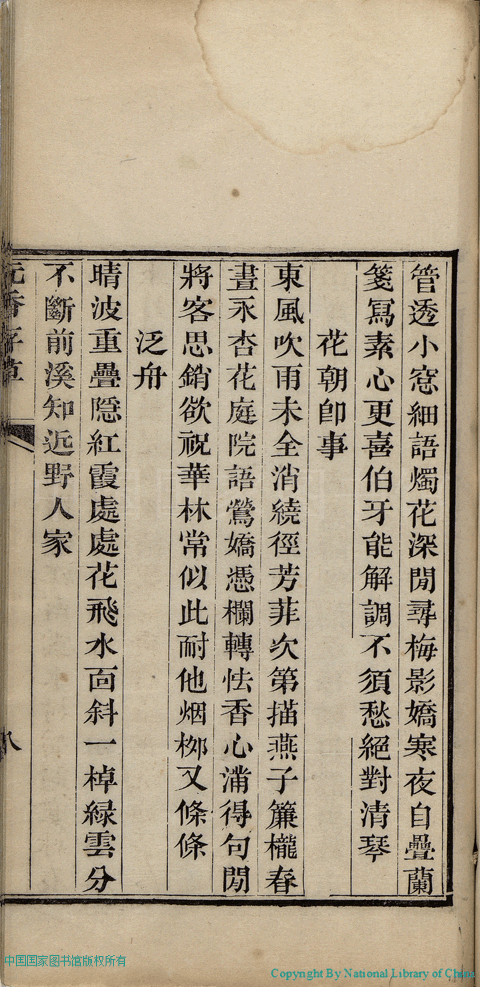 管透小窻細語燭花深閒尋梅影嬌寒夜自疊蘭
箋寫素心更喜伯牙能解調不須愁絕對清琴
花朝卽事
東風吹雨未全消繞徑芳菲次第描燕子簾櫳春
晝永杏花庭院語鶯嬌憑欄轉怯香心滿得句閒
將客思銷欲祝華林常似此耐他烟栁又條條
泛舟
晴波重疊隱紅霞處處花飛水面斜一棹綠雲分
不斷前溪知近野人家
香存草
八
中国国家图书馆版权所有
Copyright By National Library of China